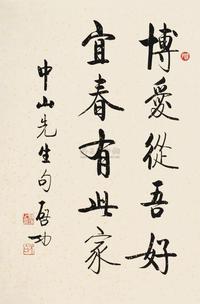 博愛從吾好
宜春有此家
中山先生句 啓功